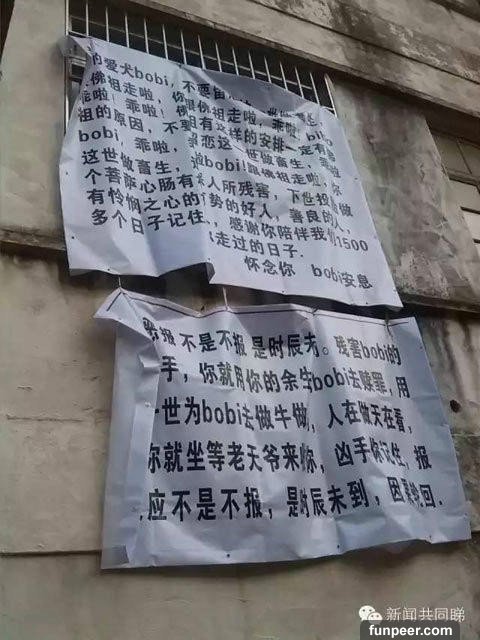 的爱犬bobi,不要留
佛祖走啦,你跟佛祖走啦,乖啦!bibo
乖啦!乖啦!
祖的原因,不要 祖有这样的安排一定有
bobi,乖啦, 恋这一世做畜生,
这世做畜生, bobi!跟佛祖走啦,你
个菩萨心肠有 人所残害,下世投 做
有怜悯之心的 势的好人,善良的人,
多个日子记住, 感谢你陪伴我们1500
走过的日子.
怀念你 bobi安息
报不是不报是时辰未。残害bobi的
手,你就用你的余生bobi去赎罪,用
一世为bobi去做牛做,人在做天在看,
你就坐等老天爷来 你,凶手你记住,报
应不是不报,是时辰未到,因果轮回.
新闻共同睇
funpeer.com